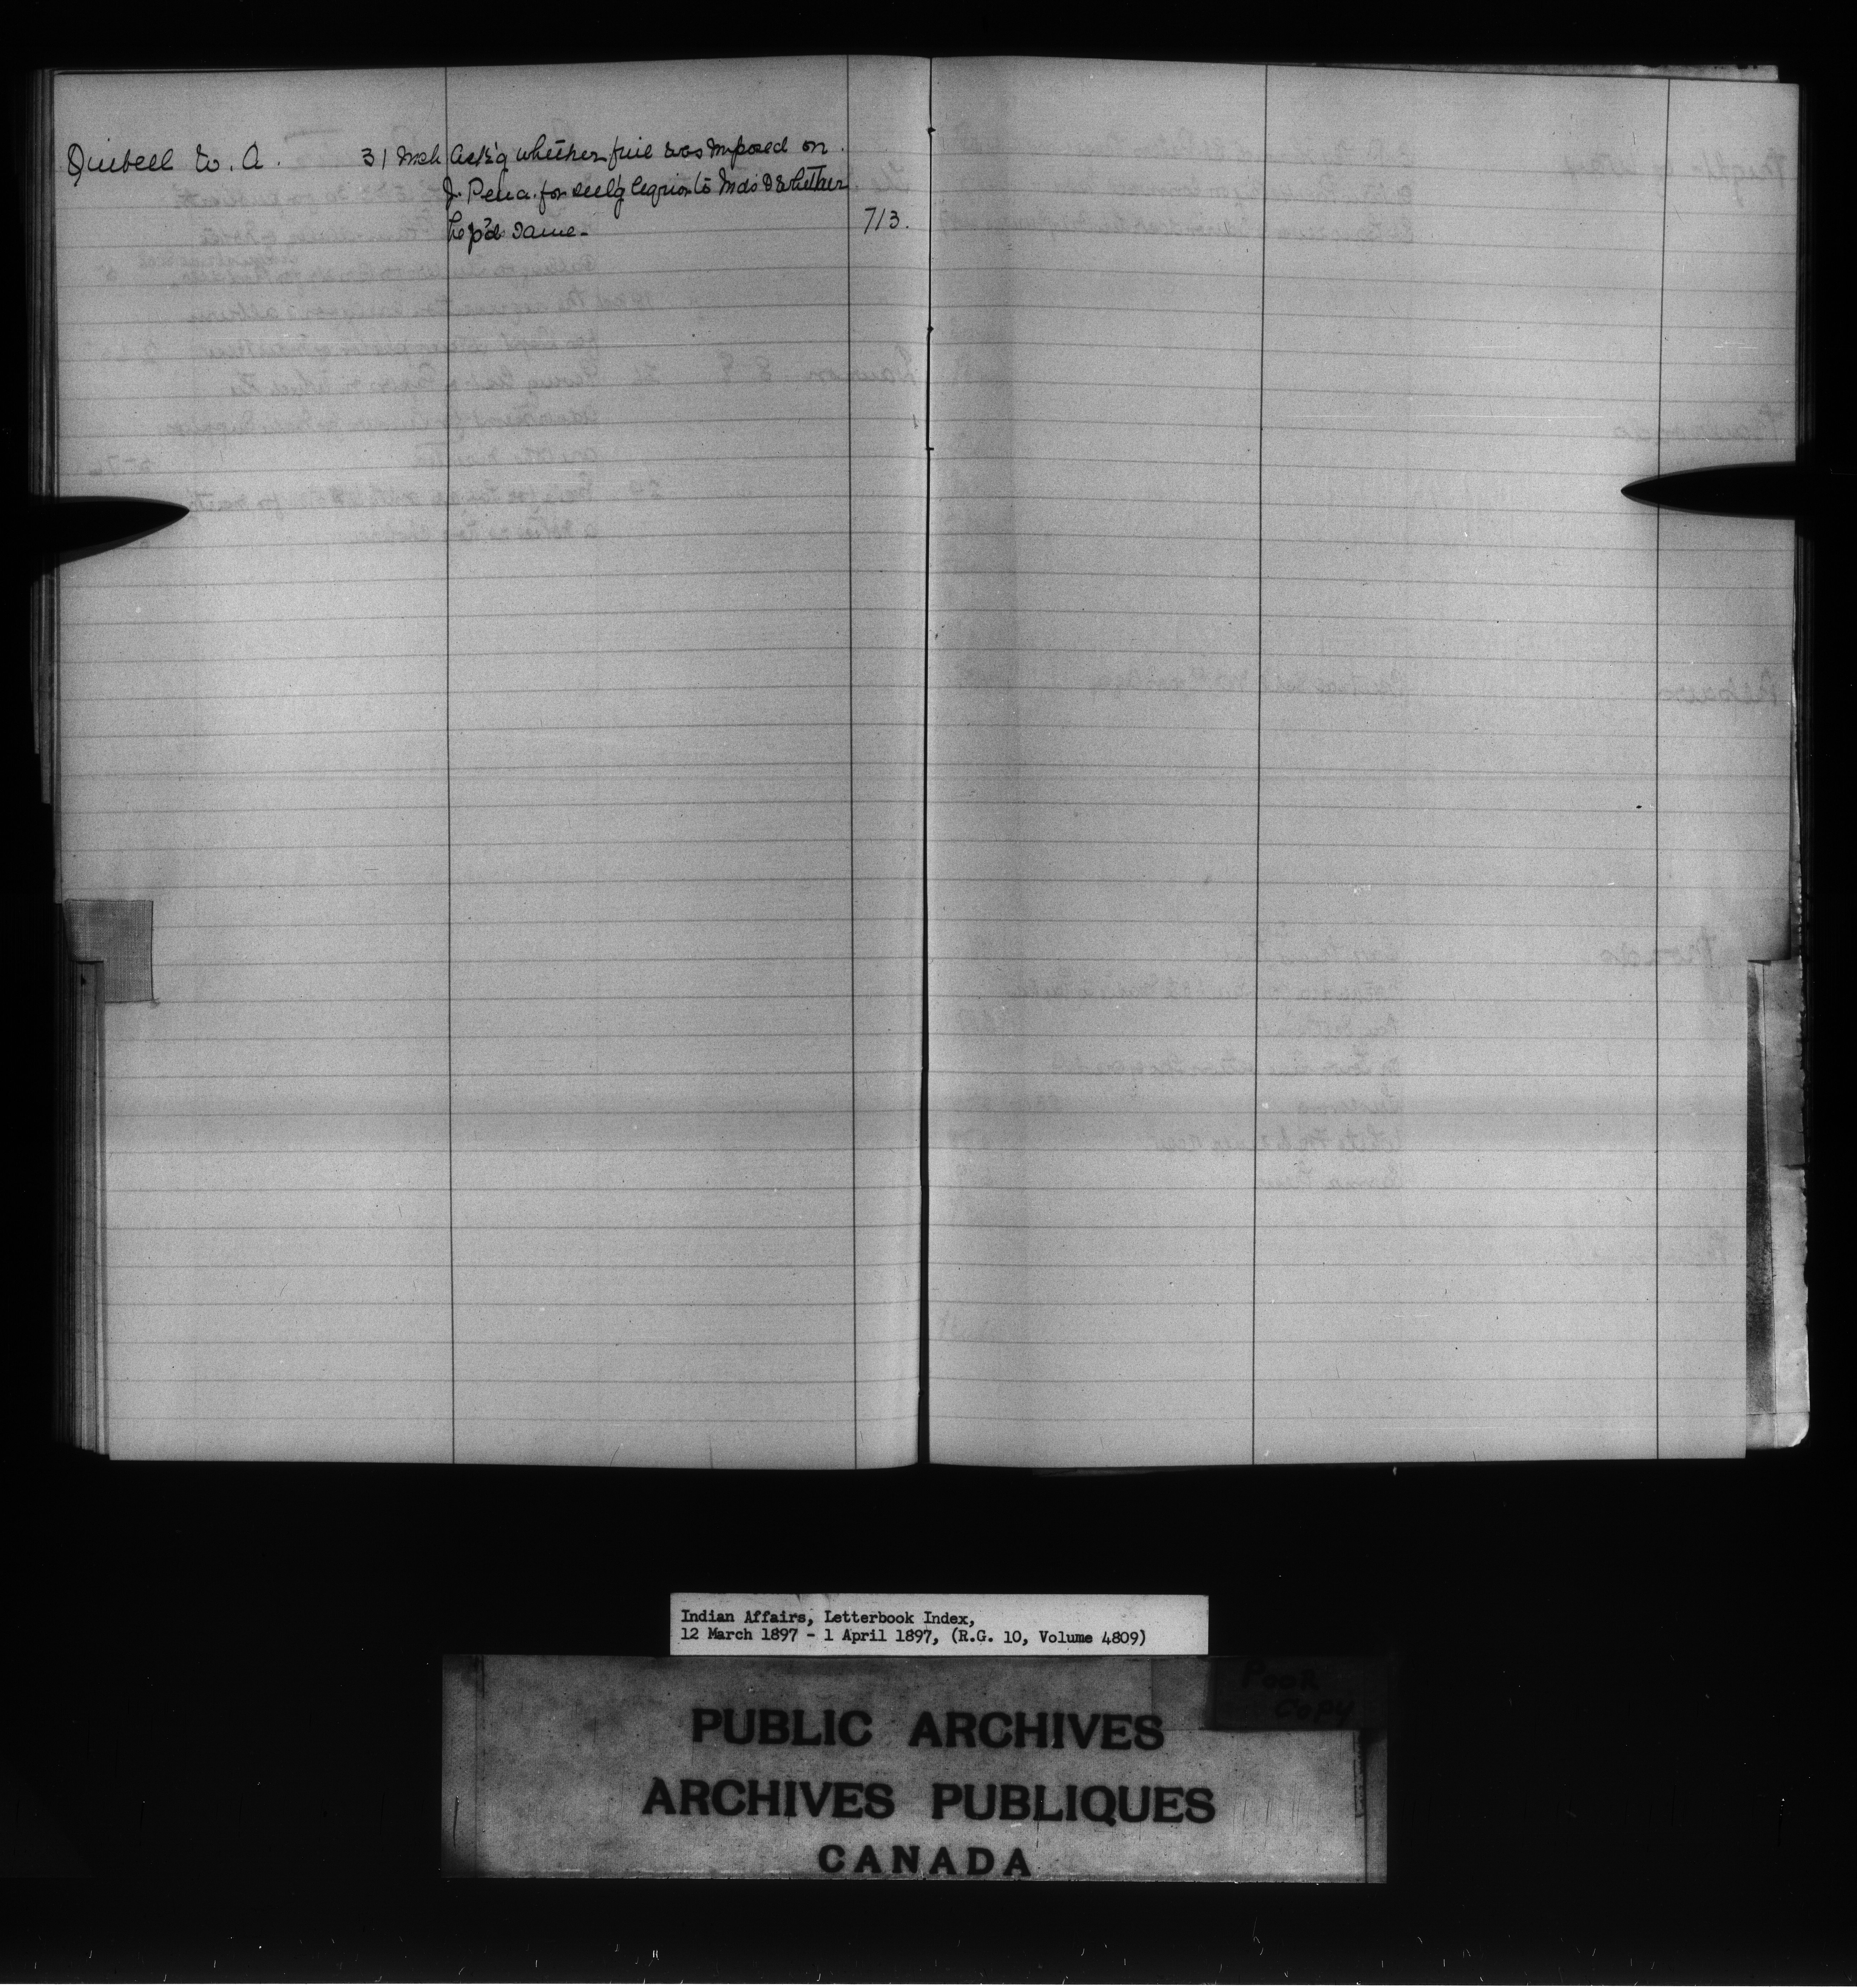 Quibell W. A. 31 Mch Ask'g whether fine was imposed on
J. Pena. for sell'g liquor to Inds & whether
he p'd same - 713.
Indian Affairs, Letterbook Index,
12 March 1897 - 1 April 1897, (R.G. 10, Volume 4809)
POOR
COPY
PUBLIC ARCHIVES
ARCHIVES PUBLIQUES
CANADA